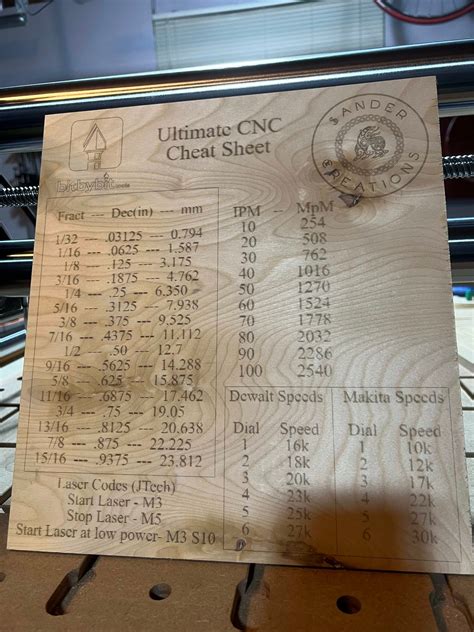 Ultimate CNC
Cheat Sheet
SANDER
CREATIONS
bitbybit
Fract --- Dec(in) --- mm
1/32 --- .03125 --- 0.794
1/16 --- .0625 --- 1.587
1/8 --- .125 --- 3.175
3/16 --- .1875 --- 4.762
1/4 --- .25 --- 6.350
5/16 --- .3125 --- 7.938
3/8 --- .375 --- 9.525
7/16 --- .4375 --- 11.112
1/2 --- .50 --- 12.7
9/16 --- .5625 --- 14.288
5/8 --- .625 --- 15.875
11/16 --- .6875 --- 17.462
3/4 --- .75 --- 19.05
13/16 --- .8125 --- 20.638
7/8 --- .875 --- 22.225
15/16 --- .9375 --- 23.812
Laser Codes (JTech)
Start Laser - M3
Stop Laser - M5
Start Laser at low power- M3 S10
IPM --- MpM
10 254
20 508
30 762
40 1016
50 1270
60 1524
70 1778
80 2032
90 2286
100 2540
Dewalt Speeds
Dial Speed
1 16k
2 18k
3 20k
4 23k
5 25k
6 27k
Makita Speeds
Dial Speed
1 10k
2 12k
3 17k
4 22k
5 27k
6 30k